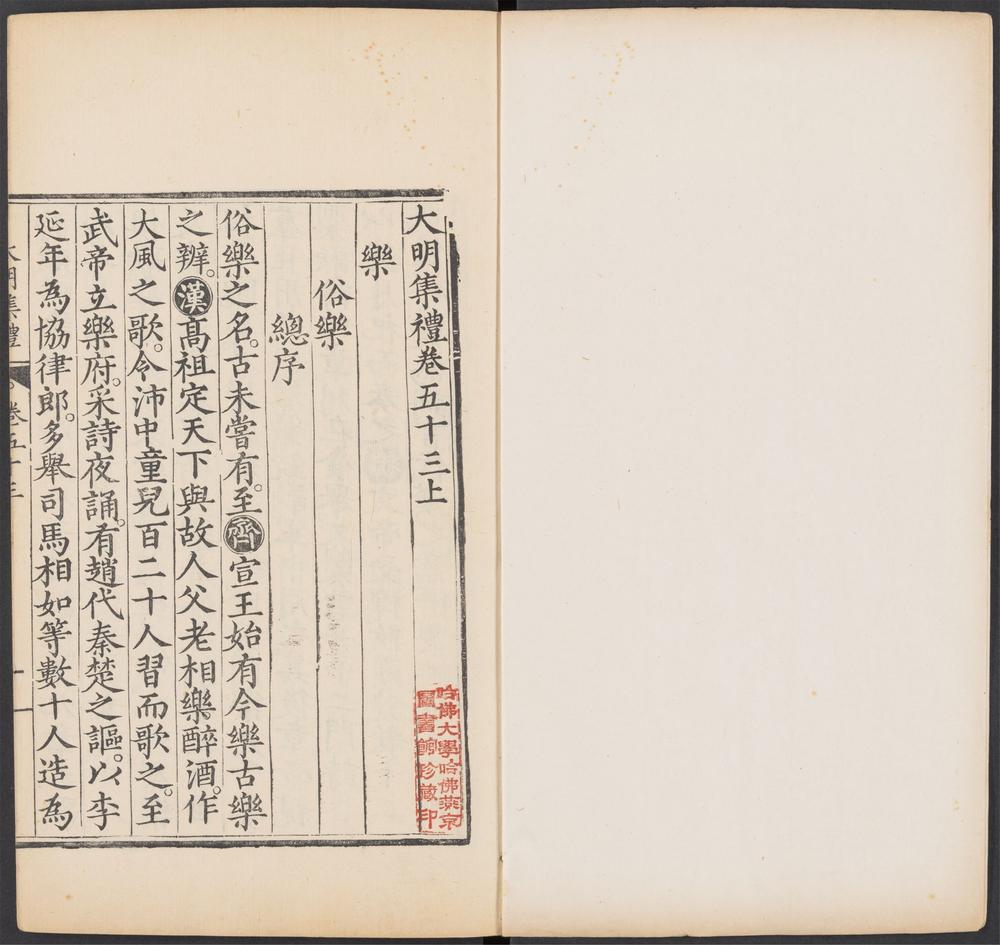 大明集禮卷五十三上
樂
俗樂
總序
俗樂之名。古未嘗有。至齊宣王始有今樂古樂
之辨。漢高祖定天下與故人父老相樂醉酒。作
大風之歌。令沛中童兒百二十人習而歌之。至
武帝立樂府。采詩夜誦。有趙代秦楚之謳。以李
延年為協律郎。多舉司馬相如等數十人造為
大明集禮 卷五十三
哈佛大學哈佛燕京
圖書館珍藏印